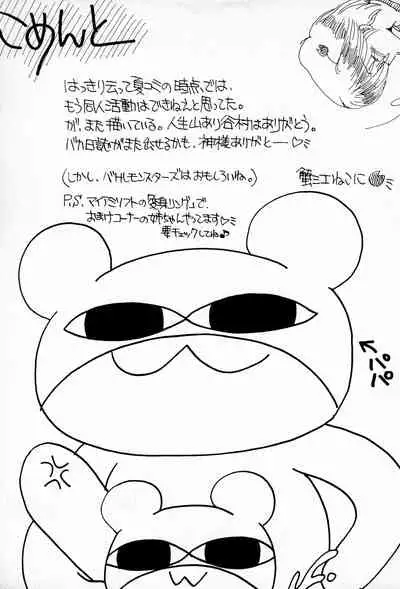 こめんと
はっきり云って夏コミの時点では、
もう同人活動はできねえと思ってた。
が、また描いている。人生山あり谷村はありがとう。
バカ日記がまた出せるかも、神様ありがとー♡ミ
(しかし、バトルモンスターズはおもしろいね。)
P.S. マイアミソフトの「変身リング」で、
おまけコーナーの姉ちゃんやってます♡ミ
要チェックしてね♪
パパ